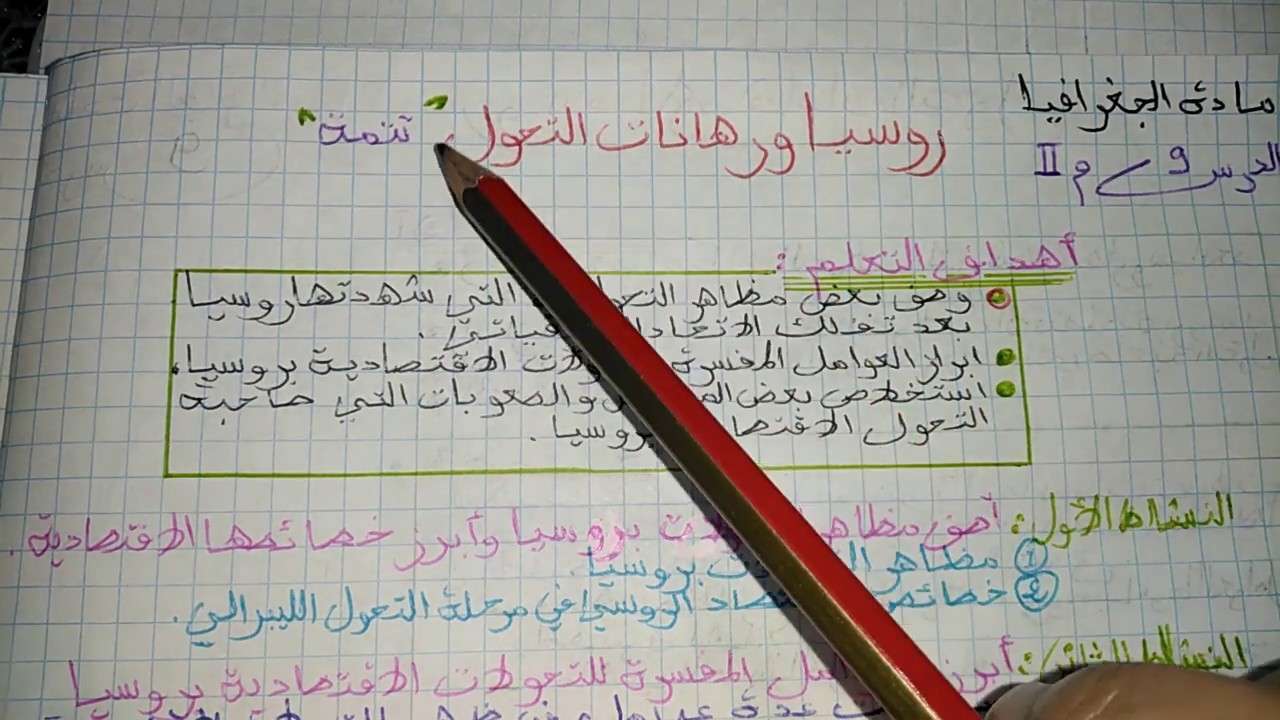 مادة الجغرافيا
الدرس 9 م II
روسيا ورهانات التحول "تتمة"
أهداف التعلم:
وصف بعض مظاهر التي شهدتها روسيا
بعد تفكك الاتحاد
ابراز العوامل المفسرة الاقتصادية بروسيا.
استخلاص بعض والصعوبات التي صاحبة
التحول بروسيا.
النشاط الأول: أصف مظاهر بروسيا وأبرز خصائصها الاقتصادية.
① مظاهر بروسيا.
② خصائص الروسي في مرحلة التحول الليبرالي.
النشاط الثاني: أبرز المفسرة للتحولات الاقتصادية بروسيا
عدة